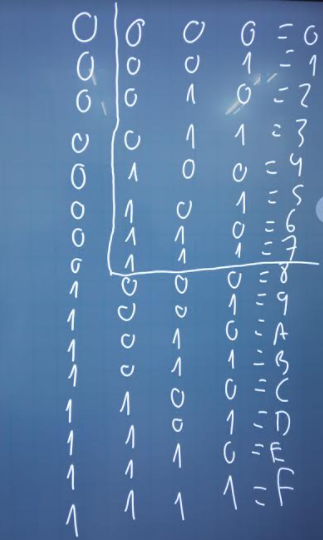 0 0 0 0 = 0
0 0 0 1 = 1
0 0 1 0 = 2
0 0 1 1 = 3
0 1 0 0 = 4
0 1 0 1 = 5
0 1 1 0 = 6
0 1 1 1 = 7
1 0 0 0 = 8
1 0 0 1 = 9
1 0 1 0 = A
1 0 1 1 = B
1 1 0 0 = C
1 1 0 1 = D
1 1 1 0 = E
1 1 1 1 = F